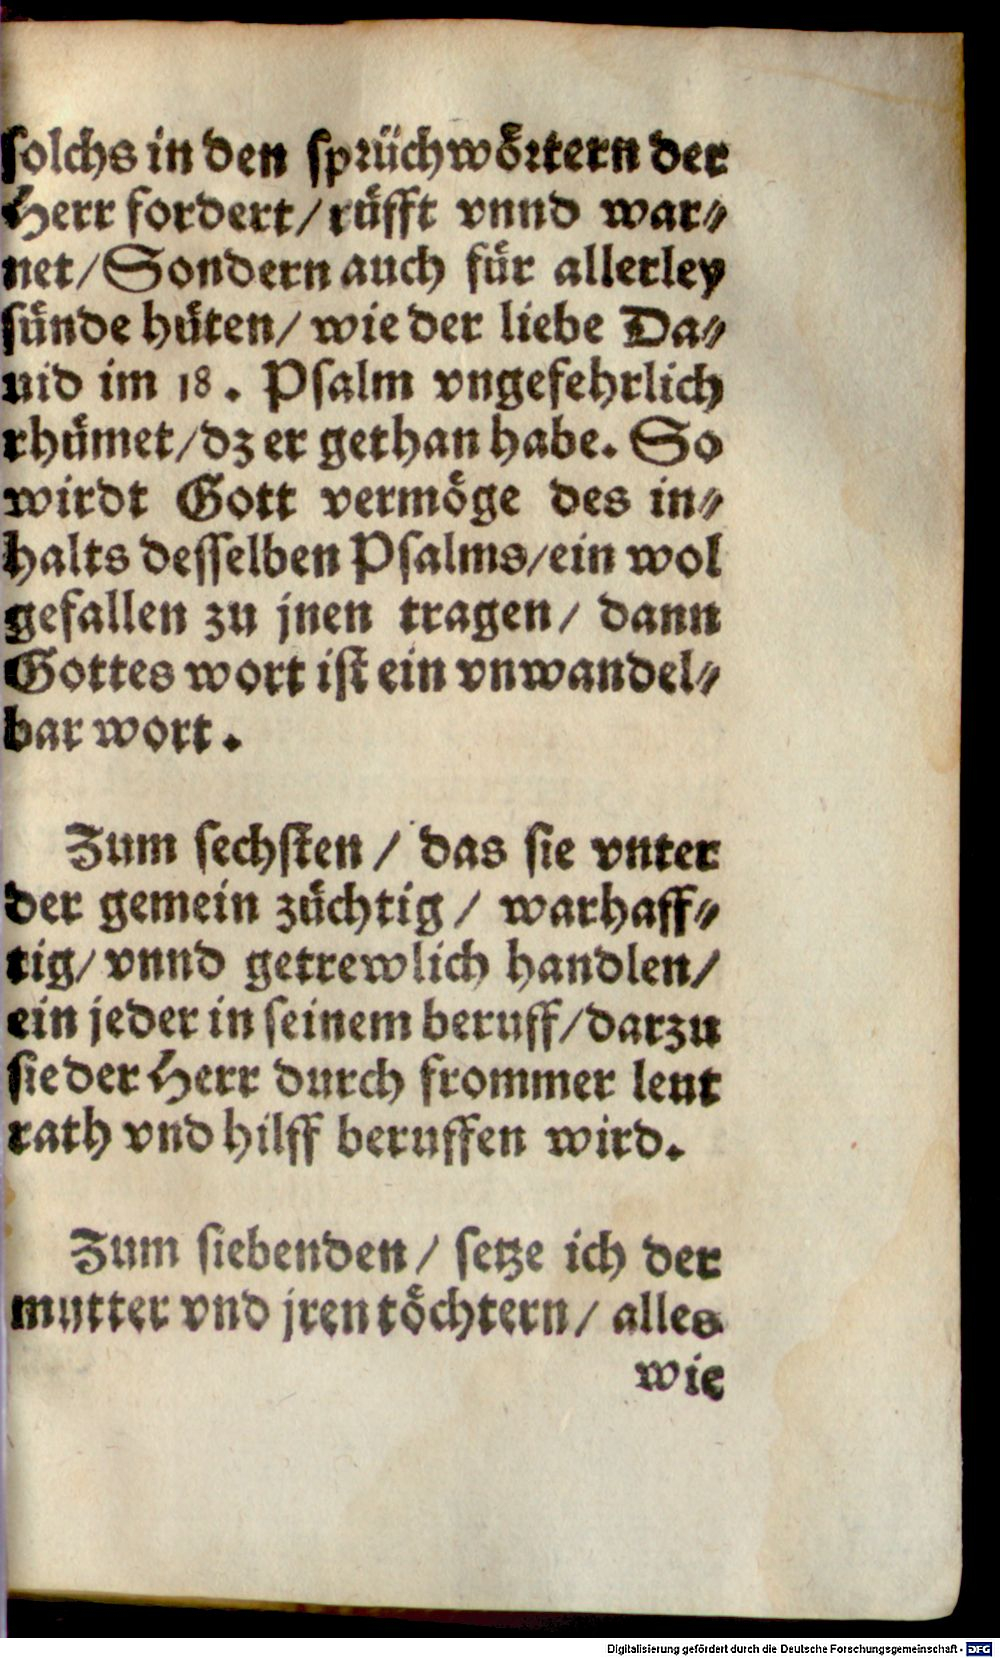 solchs in den sprüchwörtern der
Herr fordert/ rüfft vnnd war⸗
net/ Sondern auch für allerley
sünde hüten/ wie der liebe Da⸗
uid im 18. Psalm vngefehrlich
rhümet/ dz er gethan habe. So
wirdt Gott vermöge des in⸗
halts desselben Psalms/ ein wol
gefallen zu jnen tragen/ dann
Gottes wort ist ein vnwandel⸗
bar wort.
Zum sechsten/ das sie vnter
der gemein züchtig/ warhaff⸗
tig/ vnnd getrewlich handlen/
ein jeder in seinem beruff/ darzu
sie der Herr durch frommer leut
rath vnd hilff beruffen wird.
Zum siebenden/ setze ich der
mutter vnd jren töchtern/ alles
wie
Digitalisierung gefördert durch die Deutsche Forschungsgemeinschaft - DFG